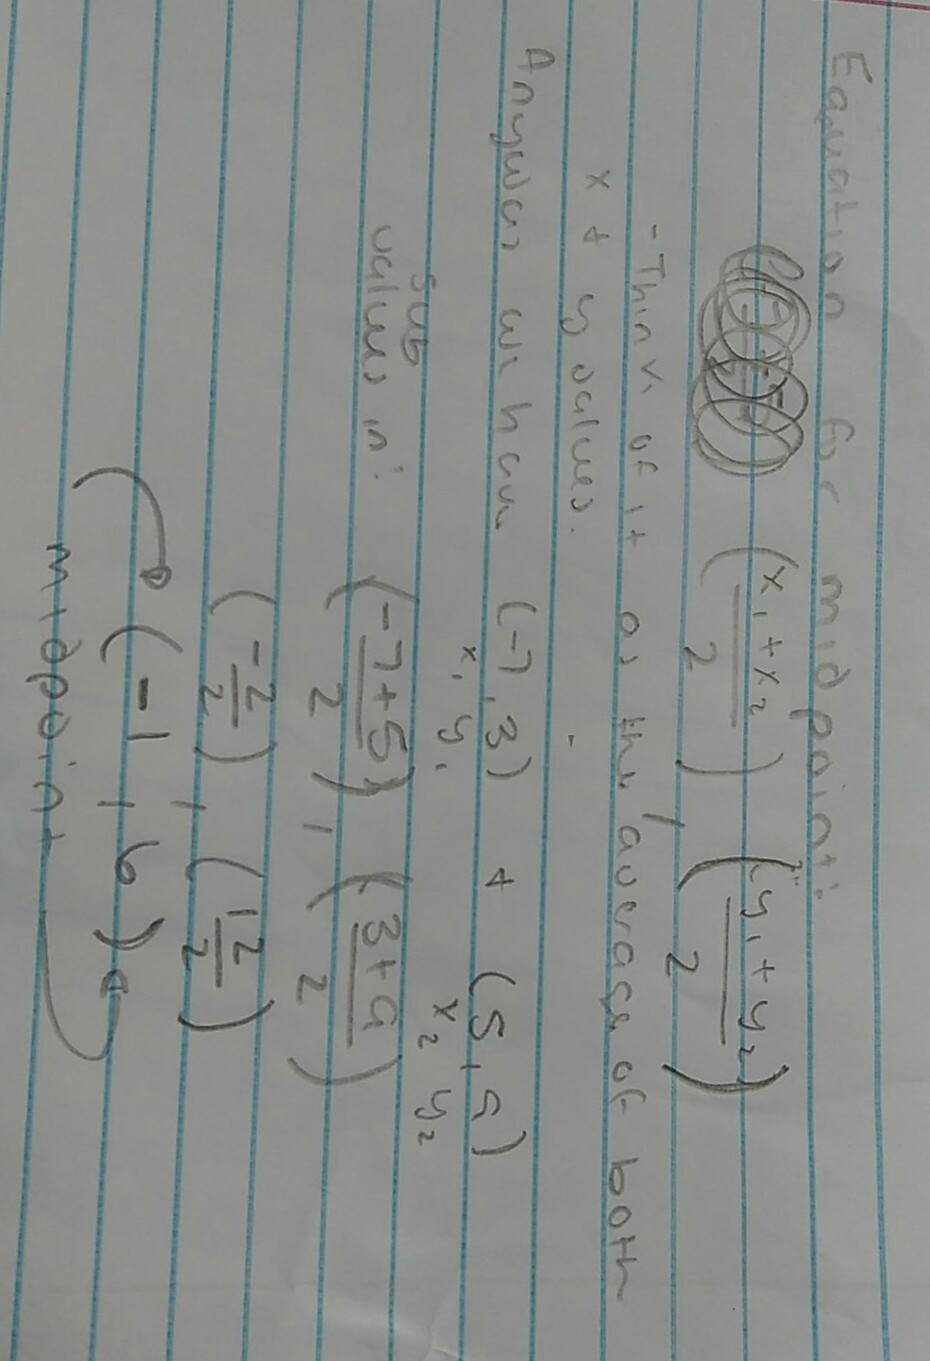 Equation for midpoint:
(x₁+x₂/2), (y₁+y₂/2)
-Think of it as the average of both
x + y values.
Anyways we have (-7,3) + (5,9)
x₁ y₁ x₂ y₂
sub
values in:
(-7+5/2), (3+9/2)
(-2/2), (12/2)
(-1,6)
midpoint